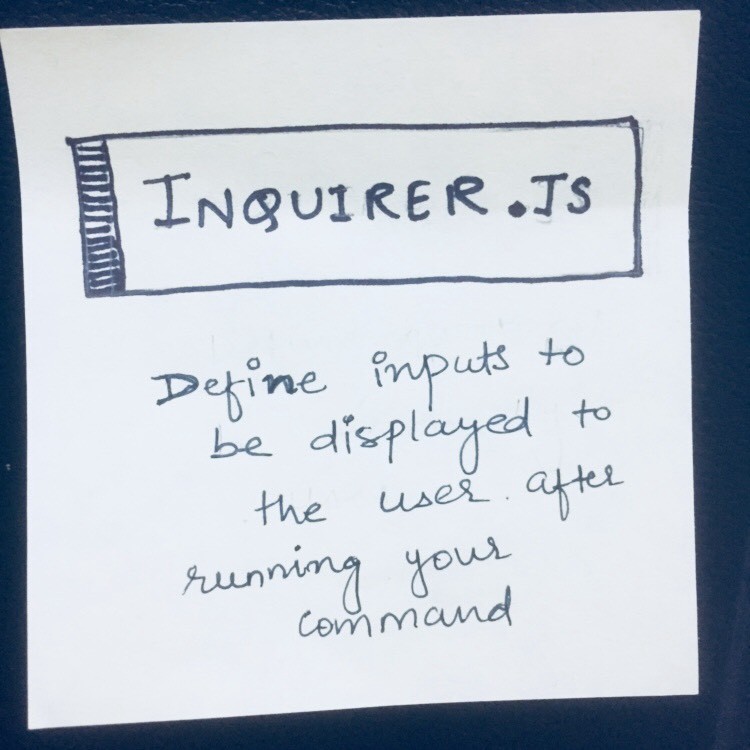 INQUIRER.JS
Define inputs to
be displayed to
the user after
running your
command